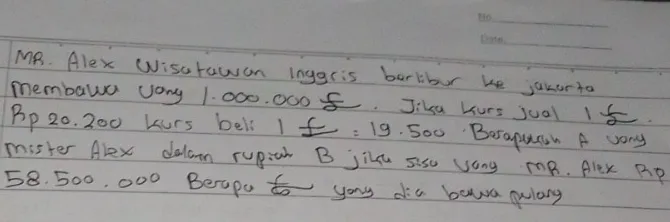 No.
Date.
MR. Alex Wisatawan Inggris berlibur ke jakarta
membawa uang 1.000.000 £. Jika kurs jual 1 £.
Rp 20.200 kurs beli 1 £ = 19.500. Berapakah A uang
mister Alex dalam rupiah B jika sisa uang MR. Alex Rp
58.500.000 Berapa £ yang dia bawa pulang